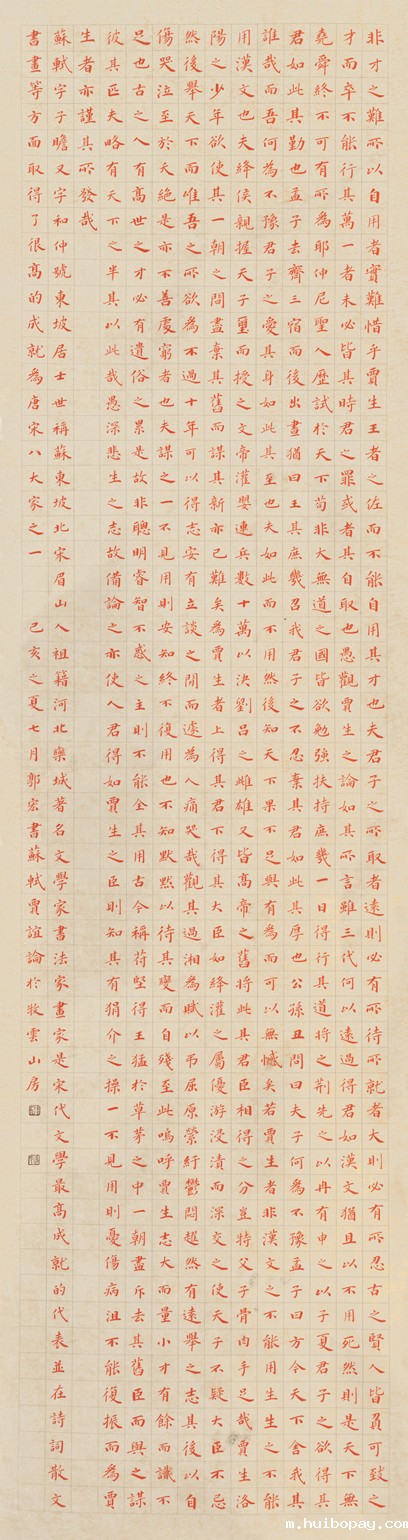 非才之難所以自用者實難惜乎賈生王者之佐而不能自用其才也夫君子之所取者遠則必有所待所就者大則必有所忍古之賢人皆負可致之
才而卒不能行其萬一者未必皆其時君之罪或者其自取也愚觀賈生之論如其所言雖三代何以遠過得君如漢文猶且以不用死然則是天下無
堯舜終不可有所為耶仲尼聖人歷試於天下苟非大無道之國皆欲勉強扶持庶幾一日得行其道將之荊先之以冉有申之以子夏君子之欲得其
君如此其勤也孟子去齊三宿而後出晝猶曰王其庶幾召我君子之不忍棄其君如此其厚也公孫丑問曰夫子何為不豫孟子曰方今天下舍我其
誰哉而吾何為不豫君子之愛其身如此其至也夫如此而不用然後知天下果不足與有為而可以無憾矣若賈生者非漢文之不能用生生之不能
用漢文也夫絳侯親握天子璽而授之文帝灌嬰連兵數十萬以決劉呂之雌雄又皆高帝之舊將此其君臣相得之分豈特父子骨肉手足哉賈生洛
陽之少年欲使其一朝之間盡棄其舊而謀其新亦已難矣為賈生者上得其君下得其大臣如絳灌之屬優游浸漬而深交之使天子不疑大臣不忌
然後舉天下而唯吾之所欲為不過十年可以得志安有立談之間而遽為人痛哭哉觀其過湘為賦以弔屈原縈紆鬱悶越然有遠舉之志其後以自
傷哭泣至於夭絕是亦不善處窮者也夫謀之一不見用則安知終不復用也不知默默以待其變而自殘至此嗚呼賈生志大而量小才有餘而識不
足也古之人有高世之才必有遺俗之累是故非聰明睿智不惑之主則不能全其用古今稱苻堅得王猛於草茅之中一朝盡斥去其舊臣而與之謀
彼其匹夫略有天下之半其以此哉愚深悲生之志故備論之亦使人君得如賈生之臣則知其有狷介之操一不見用則憂傷病沮不能復振而為賈
生者亦謹其所發哉
蘇軾字子瞻又字和仲號東坡居士世稱蘇東坡北宋眉山人祖籍河北欒城著名文學家書法家畫家是宋代文學最高成就的代表並在詩詞散文
書畫等方面取得了很高的成就為唐宋八大家之一 己亥之夏七月郭宏書蘇軾賈誼論於牧雲山房
m.huibopay.com